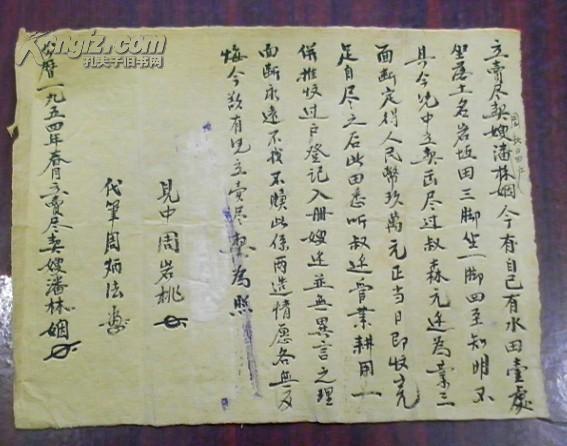 立賣尽契嫂潘林姻今有自己有水田壹處
坐落土名岩垣田三脚坐一脚四至知明不
具今凴中立契出尽过叔森元边為業三
面断定得人民幣玖萬元正当日即收完
足自尽之后此田悉听叔边管業耕用一
併推收过户登记入册嫂边並無異言之理
面断永遠不找不贖此係两造情愿各無反
悔今欲有凴立賣尽契為照
見中周岩桃
代筆周炳法
公曆一九五四年春月立賣尽契嫂潘林姻
Kongfz.com
孔夫子旧书网